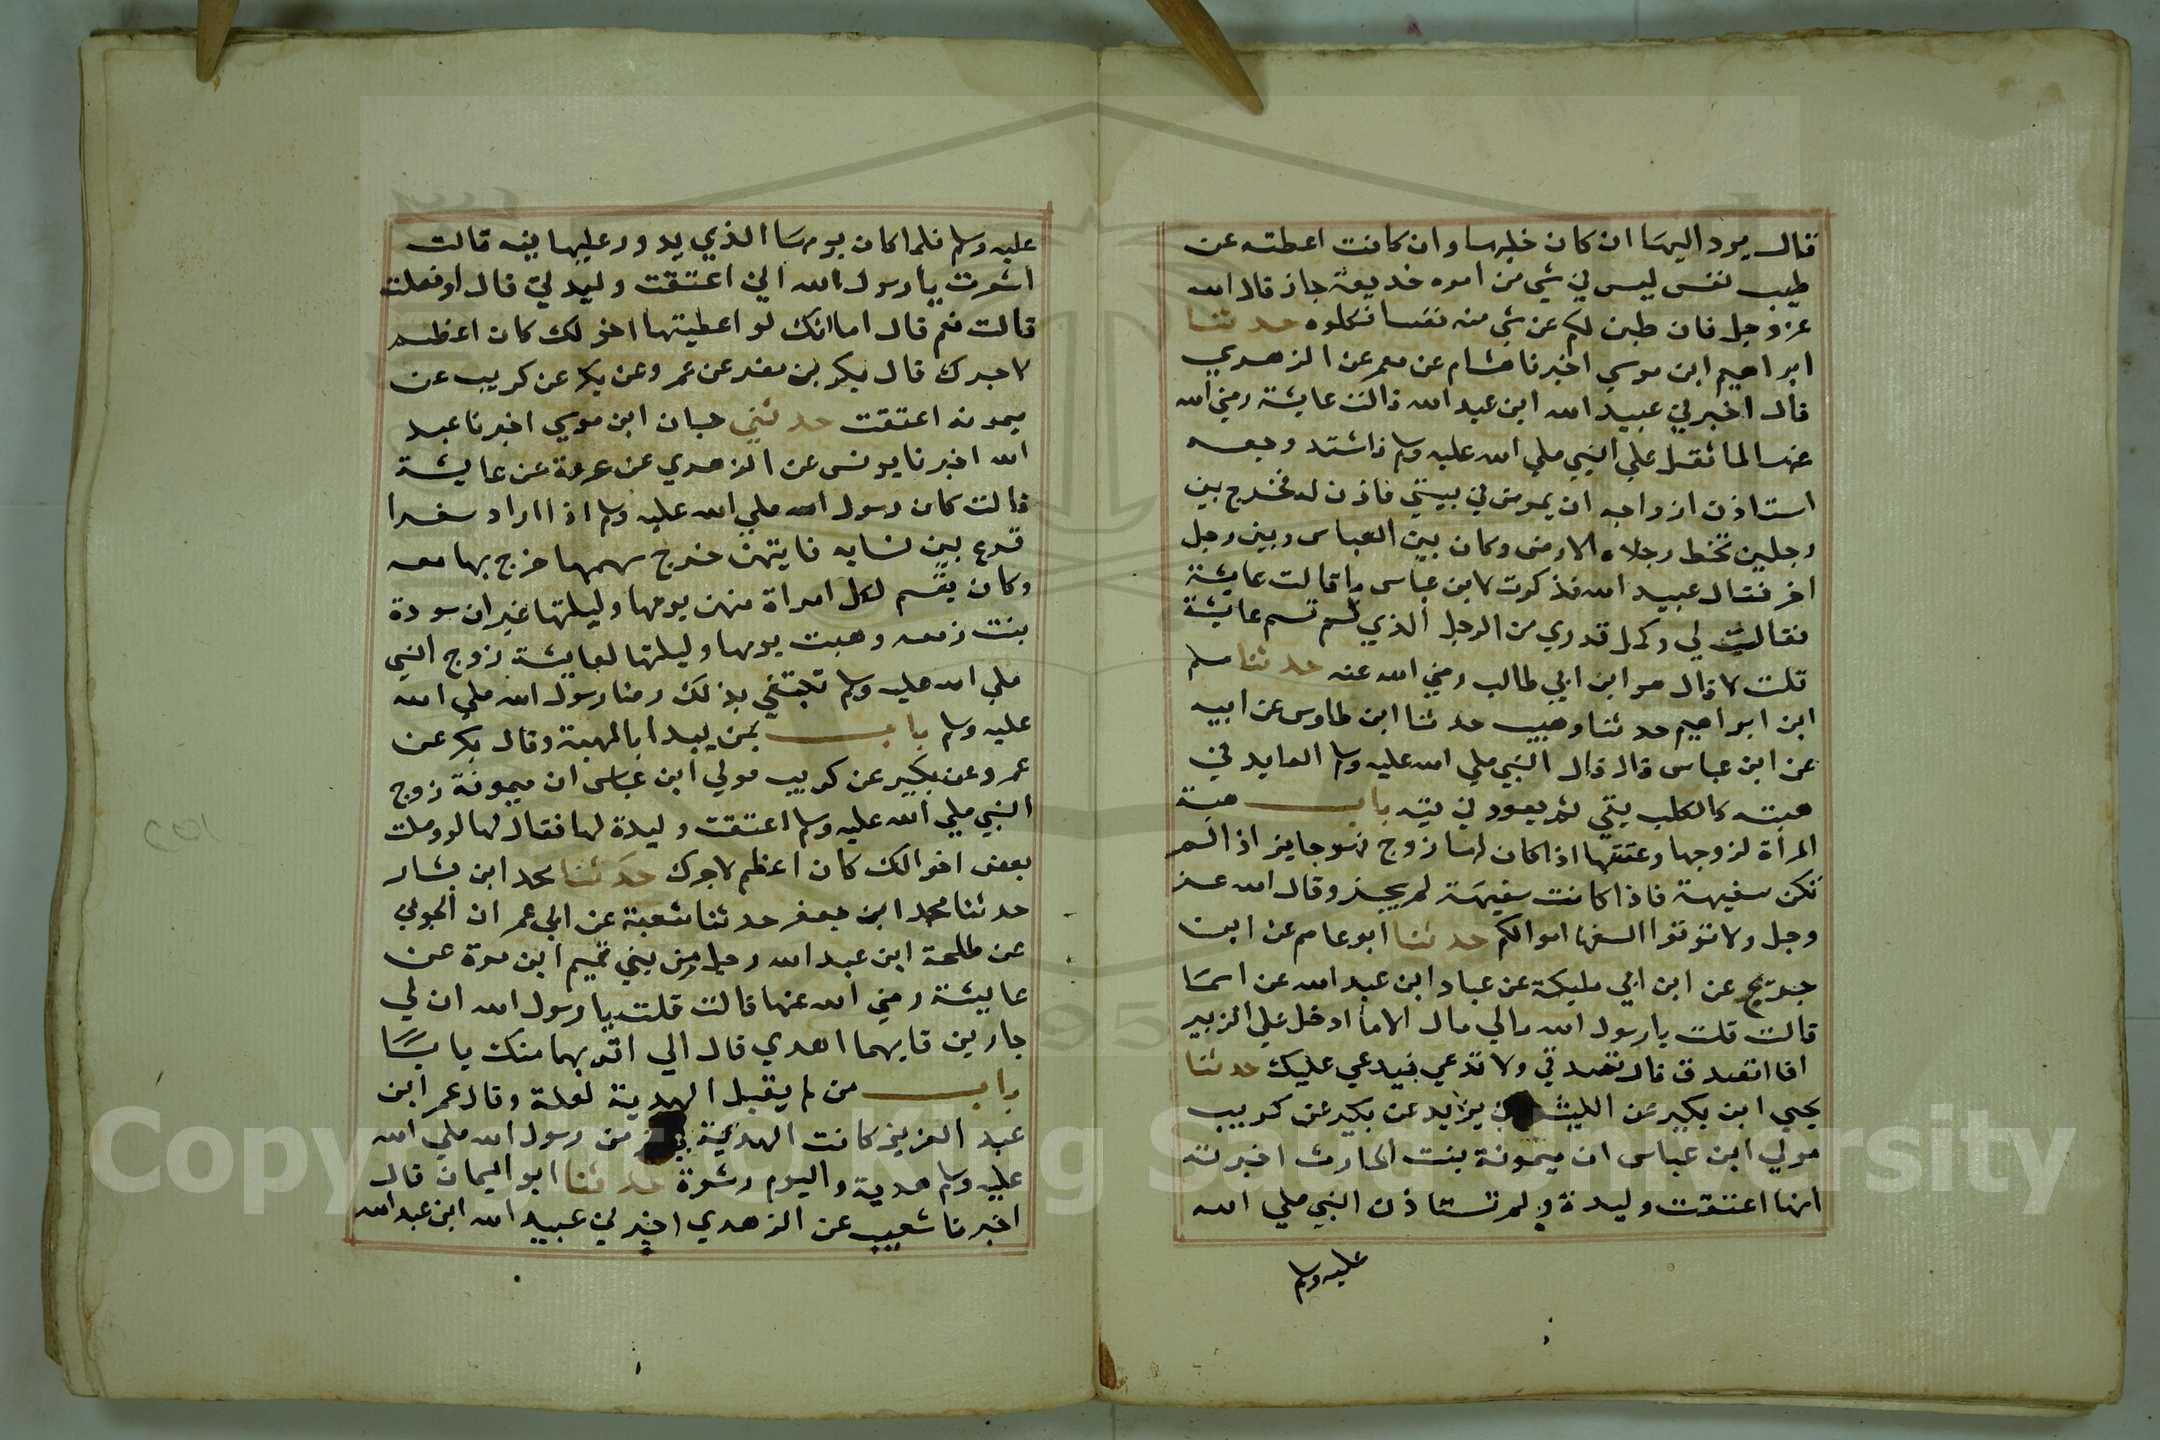 قال يرد اليها ان كان خلبها وان كانت اعطته عن
طيب نفس ليس في شي من امره خديعة جاز قال الله
عز وجل فان طبن لكم عن شي منه نفسا فكلوه حدثنا
ابراهيم ابن موسي اخبرنا هشام عن معمر عن الزهري
قال اخبرني عبيد الله ابن عبد الله قالت عايشة رضي الله
عنها لما ثقل علي النبي صلي الله عليه وسلم فاشتد وجعه
استاذن ازواجه ان يمرض في بيتي فاذن له فخرج بين
رجلين تخط رجلاه الارض وكان بين العباس وبين رجل
اخر فقال عبيد الله فذكرت لابن عباس ما قالت عايشة
فقال لي وكمل تدري من الرجل الذي لم تسم عايشة
قلت لا قال هو ابن ابي طالب رضي الله عنه حدثنا مسلم
ابن ابراهيم حدثنا وهيب حدثنا ابن طاوس عن ابيه
عن ابن عباس قال قال النبي صلي الله عليه وسلم العايد في
هبته كالكلب يقي ثم يعود في قيه باب هبة
المراة لزوجها وعتقها اذا كان لها زوج فهو جايز اذا لم
تكن سفيهة فاذا كانت سفيهة لم يجز وقال الله عز
وجل ولا توتوا السفها اموالكم حدثنا ابو عاصم عن ابن
جريج عن ابن ابي مليكة عن عباد ابن عبد الله عن اسما
قالت قلت يا رسول الله مالي مال الا ما ادخل علي الزبير
افااتصدق قال تصدقي ولا توعي فيوعي عليك حدثنا
يحيي ابن بكير عن الليث عن يزيد عن بكير عن كريب
مولي ابن عباس ان ميمونة بنت الحارث اخبرته
انها اعتقت وليدة ولم تستاذن النبي صلي الله
عليه وسلم
عليه وسلم فلما كان يومها الذي يدور عليها فيه قالت
اشعرت يا رسول الله اني اعتقت وليدتي قال اوفعلت
قالت نعم قال اما انك لو اعطيتها اخوالك كان اعظم
لاجرك قال بكر بن مضر عن عمرو عن بكر عن كريب عن
ميمونه اعتقت حدثني حبان ابن موسي اخبرنا عبد
الله اخبرنا يونس عن الزهري عن عروة عن عايشة
قالت كان رسول الله صلي الله عليه وسلم اذا اراد سفرا
قرع بين نسايه فايتهن خرج سهمها خرج بها معه
وكان يقسم لكل امراة منهن يومها وليلتها غير ان سودة
بنت زمعه وهبت يومها وليلتها لعايشة زوج النبي
صلي الله عليه وسلم تبتغي بذلك رضا رسول الله صلي الله
عليه وسلم باب بمن يبدا بالهبة وقال بكر عن
عمرو عن بكير عن كريب مولي ابن عباس ان ميمونة زوج
النبي صلي الله عليه وسلم اعتقت وليدة لها فقال لها لو وصلت
بعض اخوالك كان اعظم لاجرك حدثنا محمد ابن بشار
حدثنا محمد ابن جعفر حدثنا شعبة عن ابي عمران الجوني
عن طلحة ابن عبد الله رجل من بني تميم ابن مرة عن
عايشة رضي الله عنها قالت قلت يا رسول الله ان لي
جارين فايهما اهدي قال الي اقربهما منك بابا
باب من لم يقبل الهدية لعلة وقال عمر ابن
عبد العزيز كانت الهدية من رسول الله صلي الله
عليه وسلم هدية واليوم رشوة حدثنا ابو اليمان قال
اخبرنا شعيب عن الزهري اخبرني عبيد الله ابن عبد الله
Copyright © King Saud University